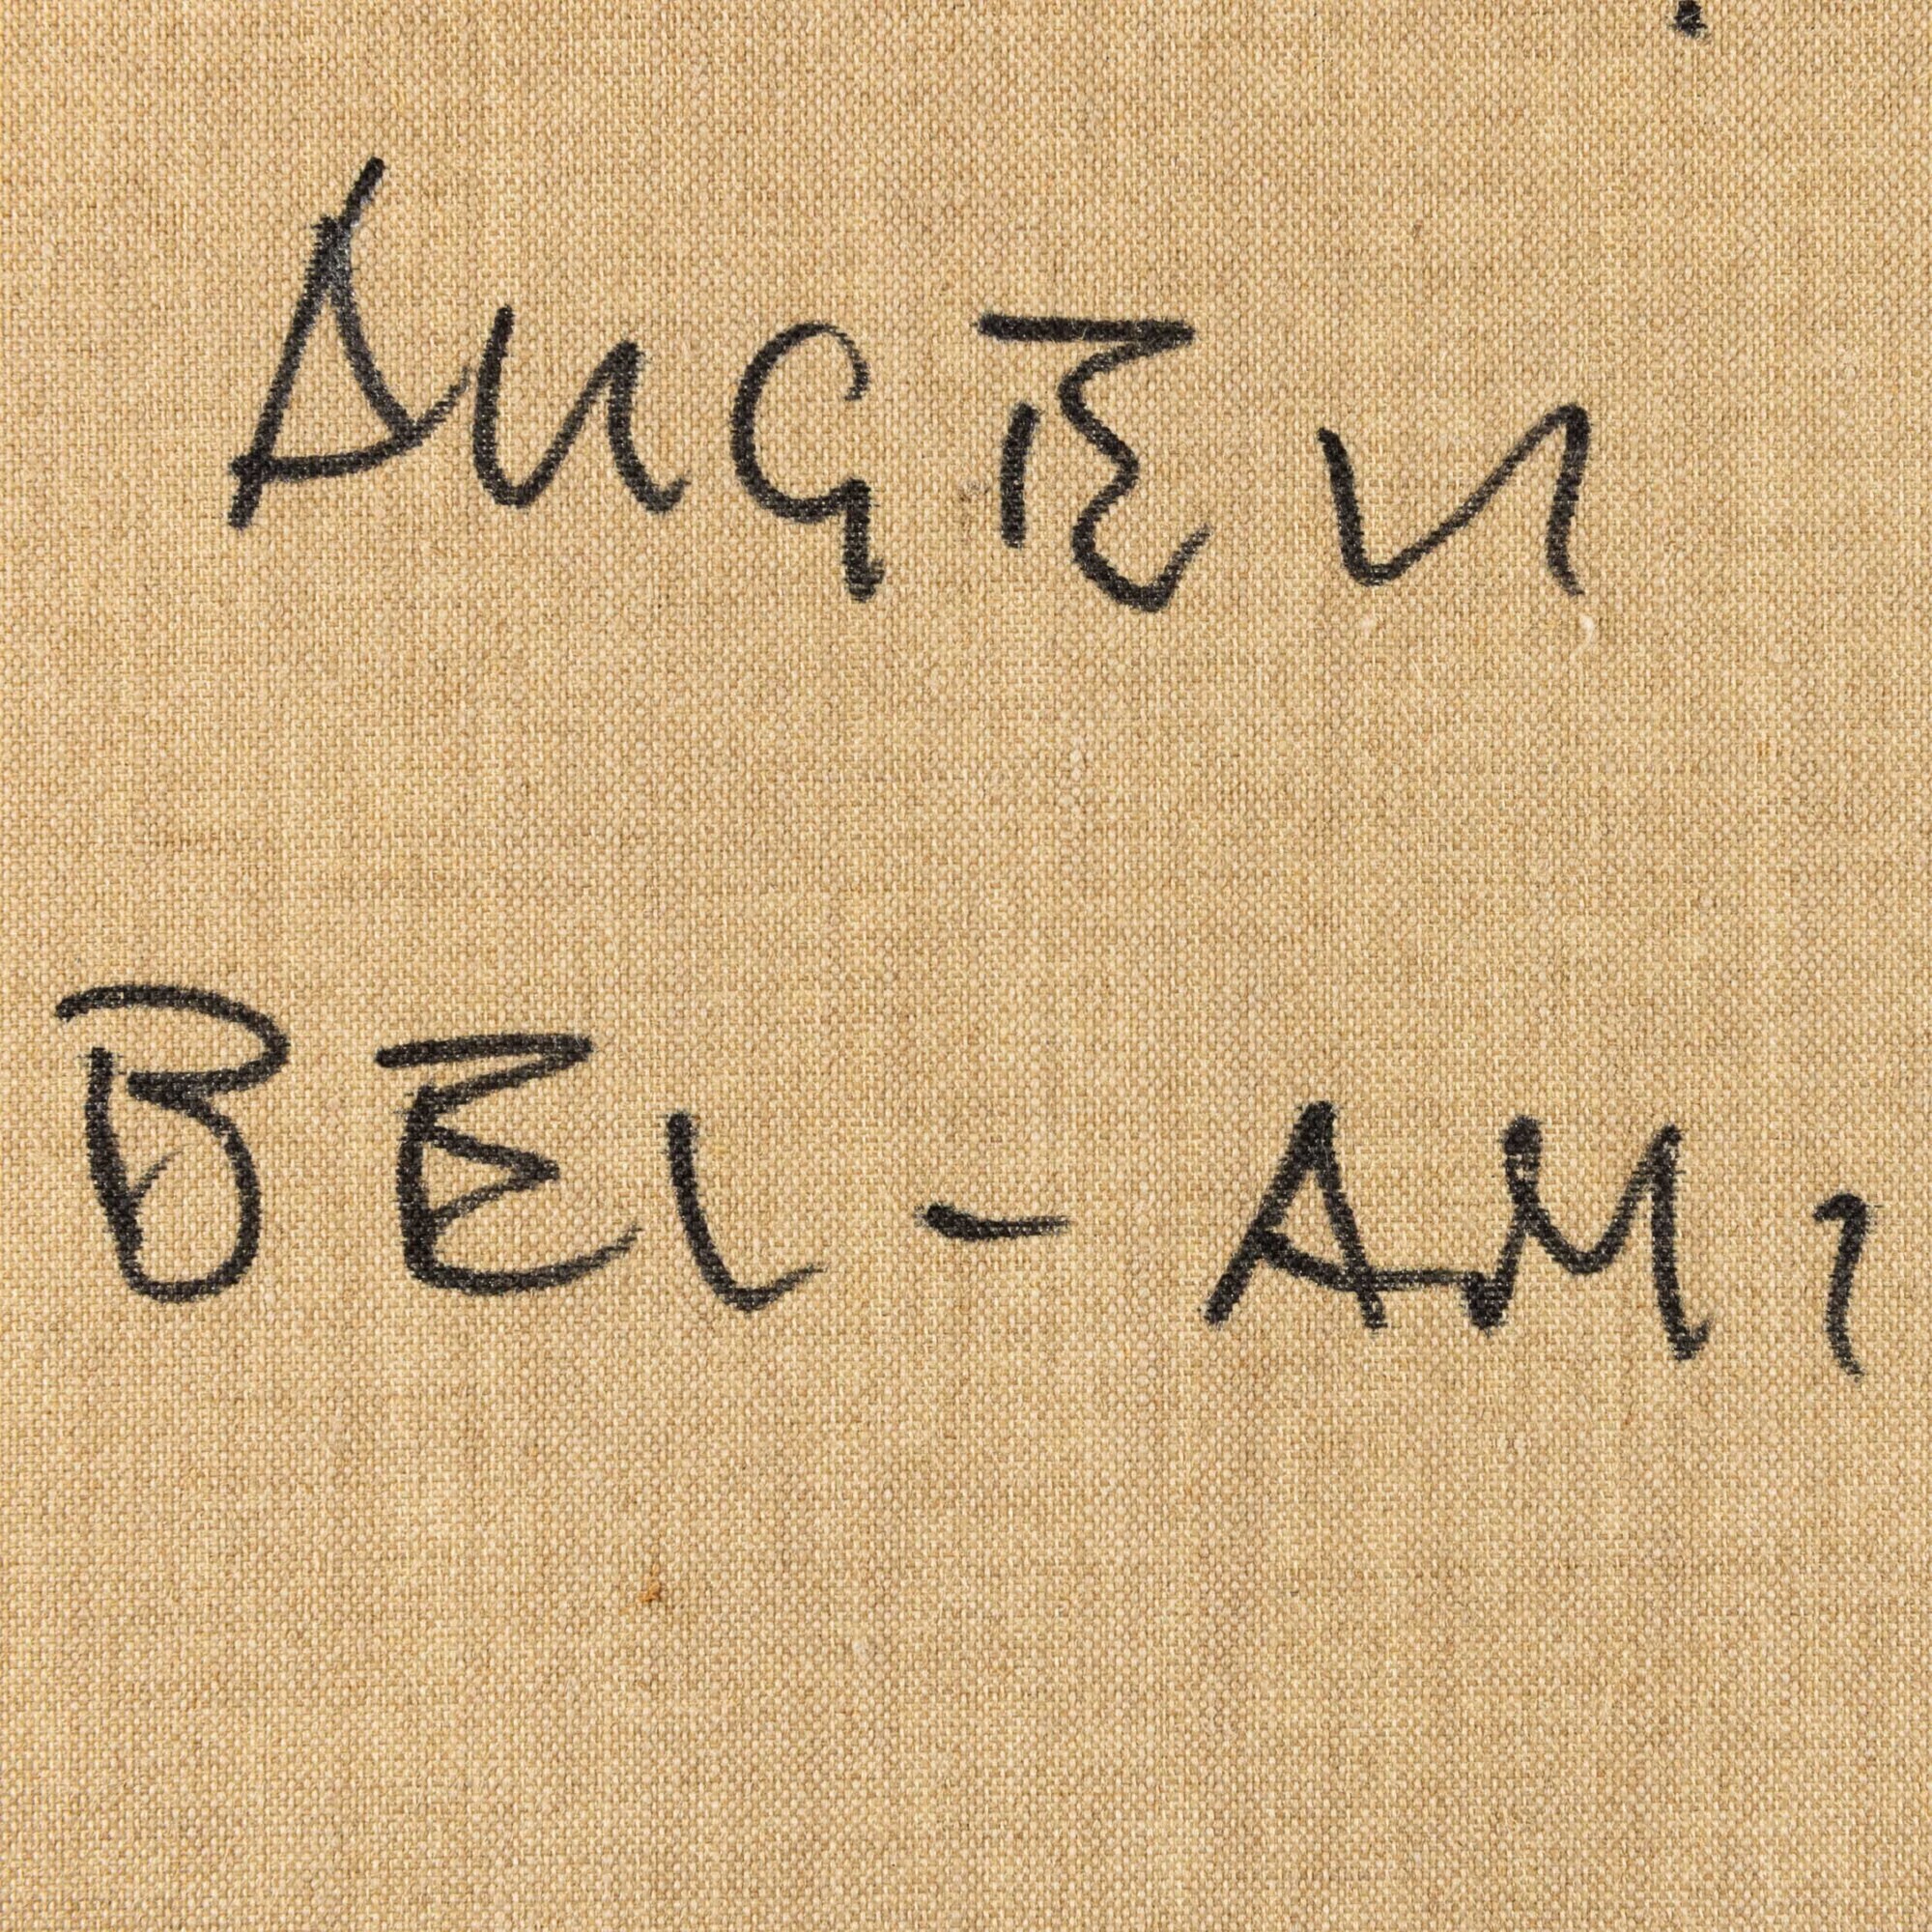 AUGEN
BEL-AMI